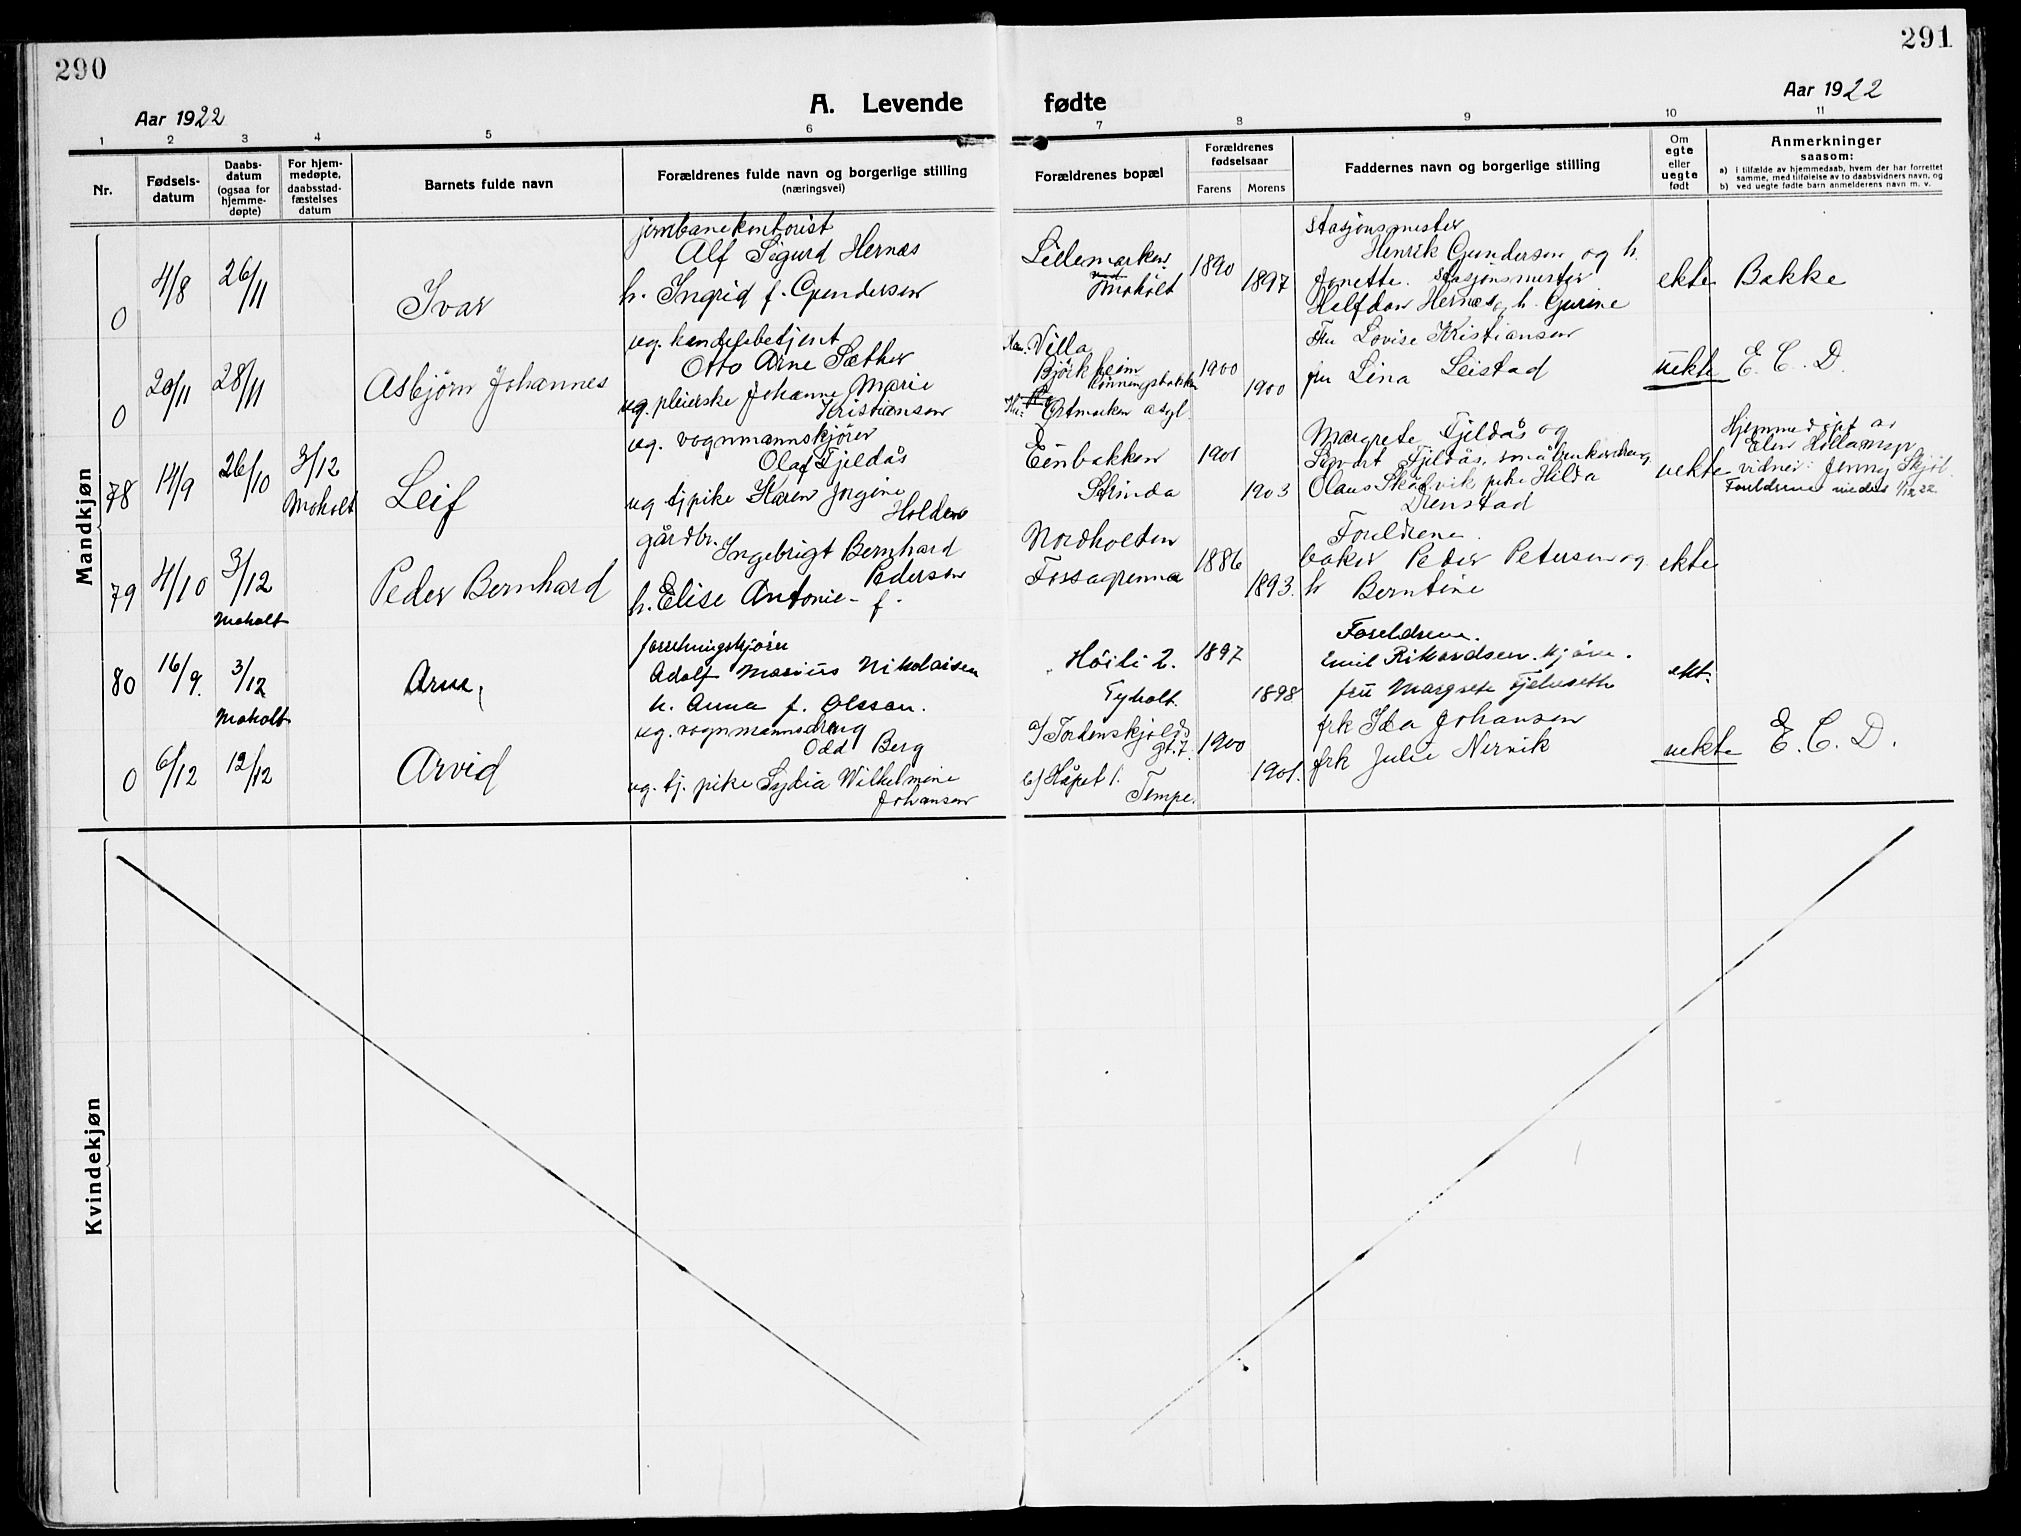 290
291
Aar 1922
A. Levende
fødte
Aar 1922
1 2 3 4 5 6 7 8 9 10 11
Nr.
Fødsels-
datum
Daabs-
datum
(ogsaa for
hjemme-
døpte)
For hjem-
medøpte,
daabsstad-
fæstelses
datum
Barnets fulde navn
Forældrenes fulde navn og borgerlige stilling
(næringsvei)
Forældrenes bopæl
Forældrenes
fødselsaar
Farens Morens
Faddernes navn og borgerlige stilling
Om
egte
eller
uegte
født
Anmerkninger
saasom:
a) i tilfælde av hjemmedaab, hvem der har forrettet
samme, med tilføielse av to daabsvidners navn, og
b) ved uegte fødte barn anmelderens navn m. v.
Mandkjøn
0
4/8
26/11
Ivar
jernbanekontorist
Alf Sigurd Hernæs
h. Ingrid f. Gundersen
Lillemarken
Moholt
1890
1897
Stasjonsmester
Henrik Gundersen og h.
Jonette. Stasjonsmester
Halfdan Hernæs, h. Gurine
ekte
Bakke
0
20/11
28/11
Asbjørn Johannes
ug. handelsbetjent
Otto Arne Sæther
ug. pleierske Johanne Marie
Kristiansen
Villa
Bjørkheim
1900
1900
Fru Lovise Kristiansen
fru Lina Leistad
uekte
E. C. D.
78
14/9
26/10
3/12
Moholt
Leif
ug. vognmannskjører
Olaf Fjeldås
ug tj pike Karen Jorgine
Holden
Einbakken
Strinda
1901
1903
Margrete Fjeldås og
Fjeldås, småbruker
Olaus pike Hilda
uekte
Hjemmedøpt av
vidner: Jenny
Foreldrene viedes 1/12 22
79
4/10
3/12
Moholt
Peder Bernhard
gårdbr. Ingebrigt Bernhard
Pedersen
h. Elise Antonie - f -
Nordholten
Fossagrenna
1886
1893.
Foreldrene.
baker Peder Petersen og
h Berntine
ekte
80
16/9.
3/12
Moholt
Arne
forretningskjører
Adolf Marius Nikolaisen
h. Anna f. Olssen.
Høili 2.
Tyholt.
1897
1898
Foreldrene.
Emil Rikardsen. kjører.
fru Margrete
ekt.
0
6/12
12/12
Arvid
ug. vognmannsdreng
Odd Berg
ug. tj. pike Lydia Wilhelmine
Johansen
a/ Tordenskjolds
gt. 7.
b/ Håpet 1.
Tempe.
1900
1901.
frk Ida Johansen
frk Julie Nervik
uekte
E. C. D.
Kvindekjøn